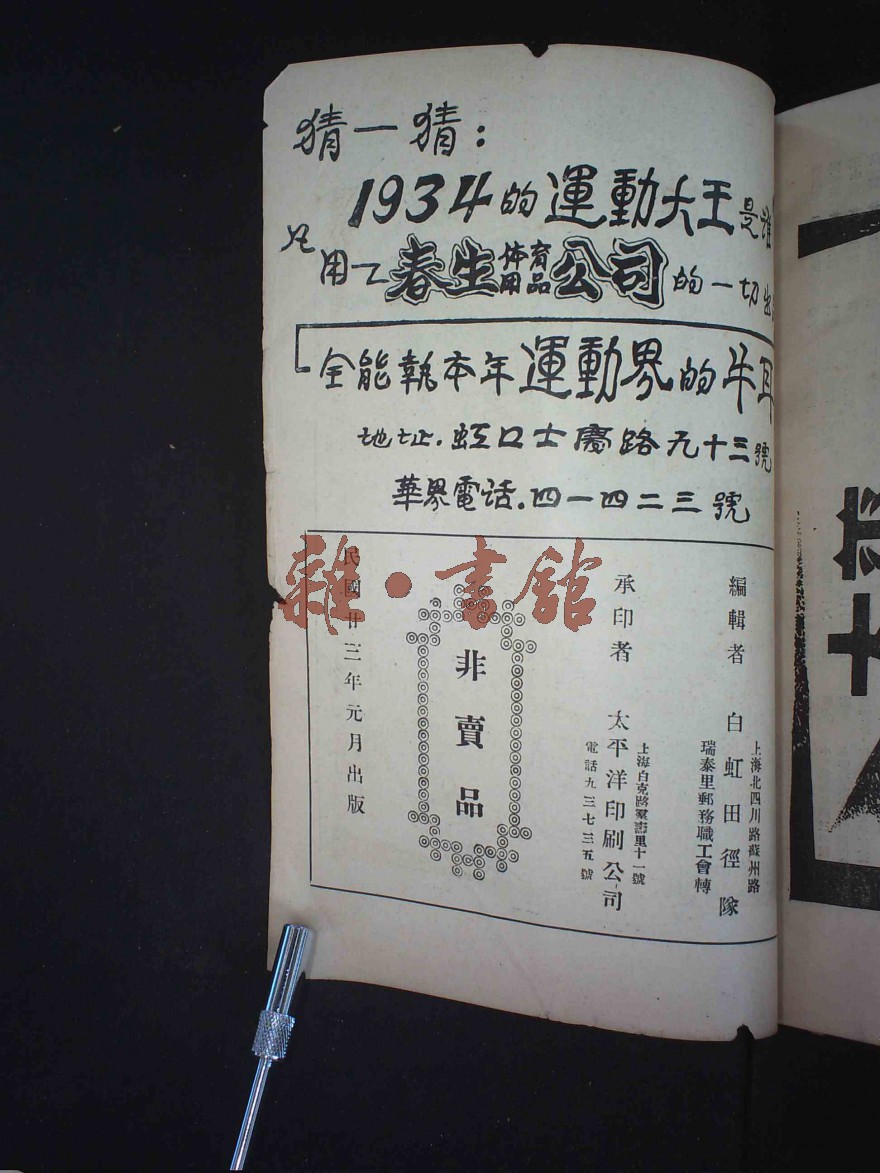 猜一猜：
1934的運動大王是誰
凡用了春生体育用品公司的一切出
全能執本年運動界的牛耳
地址．虹口士慶路九十三號
華界電话．四一四二三號
編輯者　白虹田徑隊
上海北四川路蘇州路
瑞泰里郵務職工會轉
承印者　太平洋印刷公司
上海白克路羣壽里十一號
電話九三七三五號
非賣品
民國廿三年元月出版
雜·書館